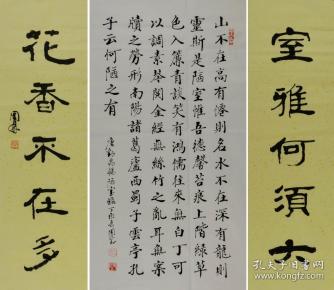 室雅何須大
山不在高有僊則名水不在深有龍則
靈斯是陋室惟吾德馨苔痕上階綠草
色入簾青談笑有鴻儒往來無白丁可
以調素琴閱金經無絲竹之亂耳無案
牘之勞形南陽諸葛廬西蜀子雲亭孔
子云何陋之有
唐劉禹錫陋室銘
花香不在多
孔夫子旧书网